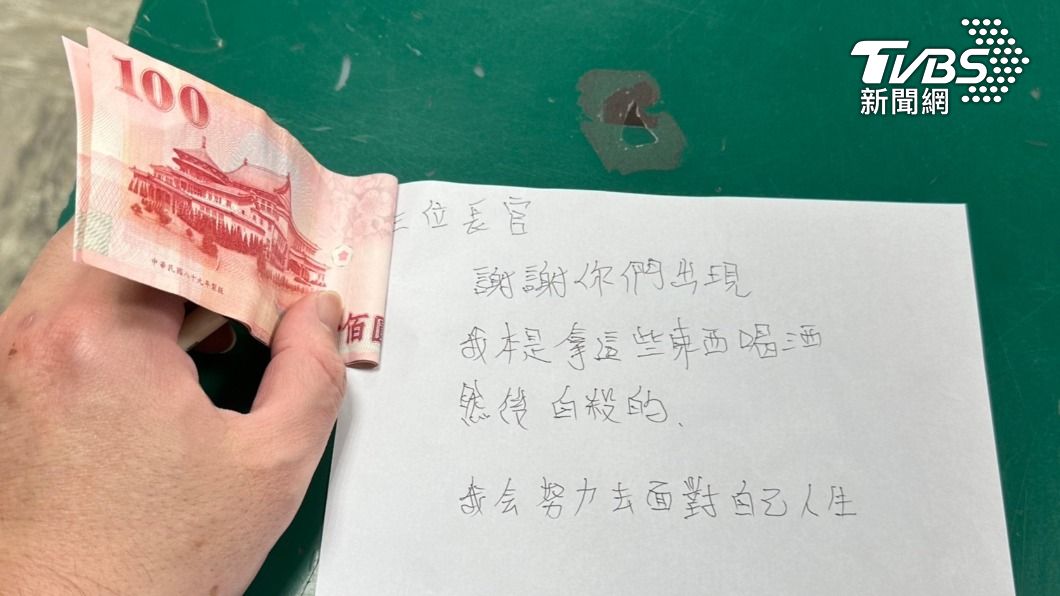 TVBS
新聞網
100
中華民國八十九年製版
佰圓
三位長官
謝謝你們出現
我本是拿這些東西喝酒
然後自殺的、
我会努力去面對自己人生